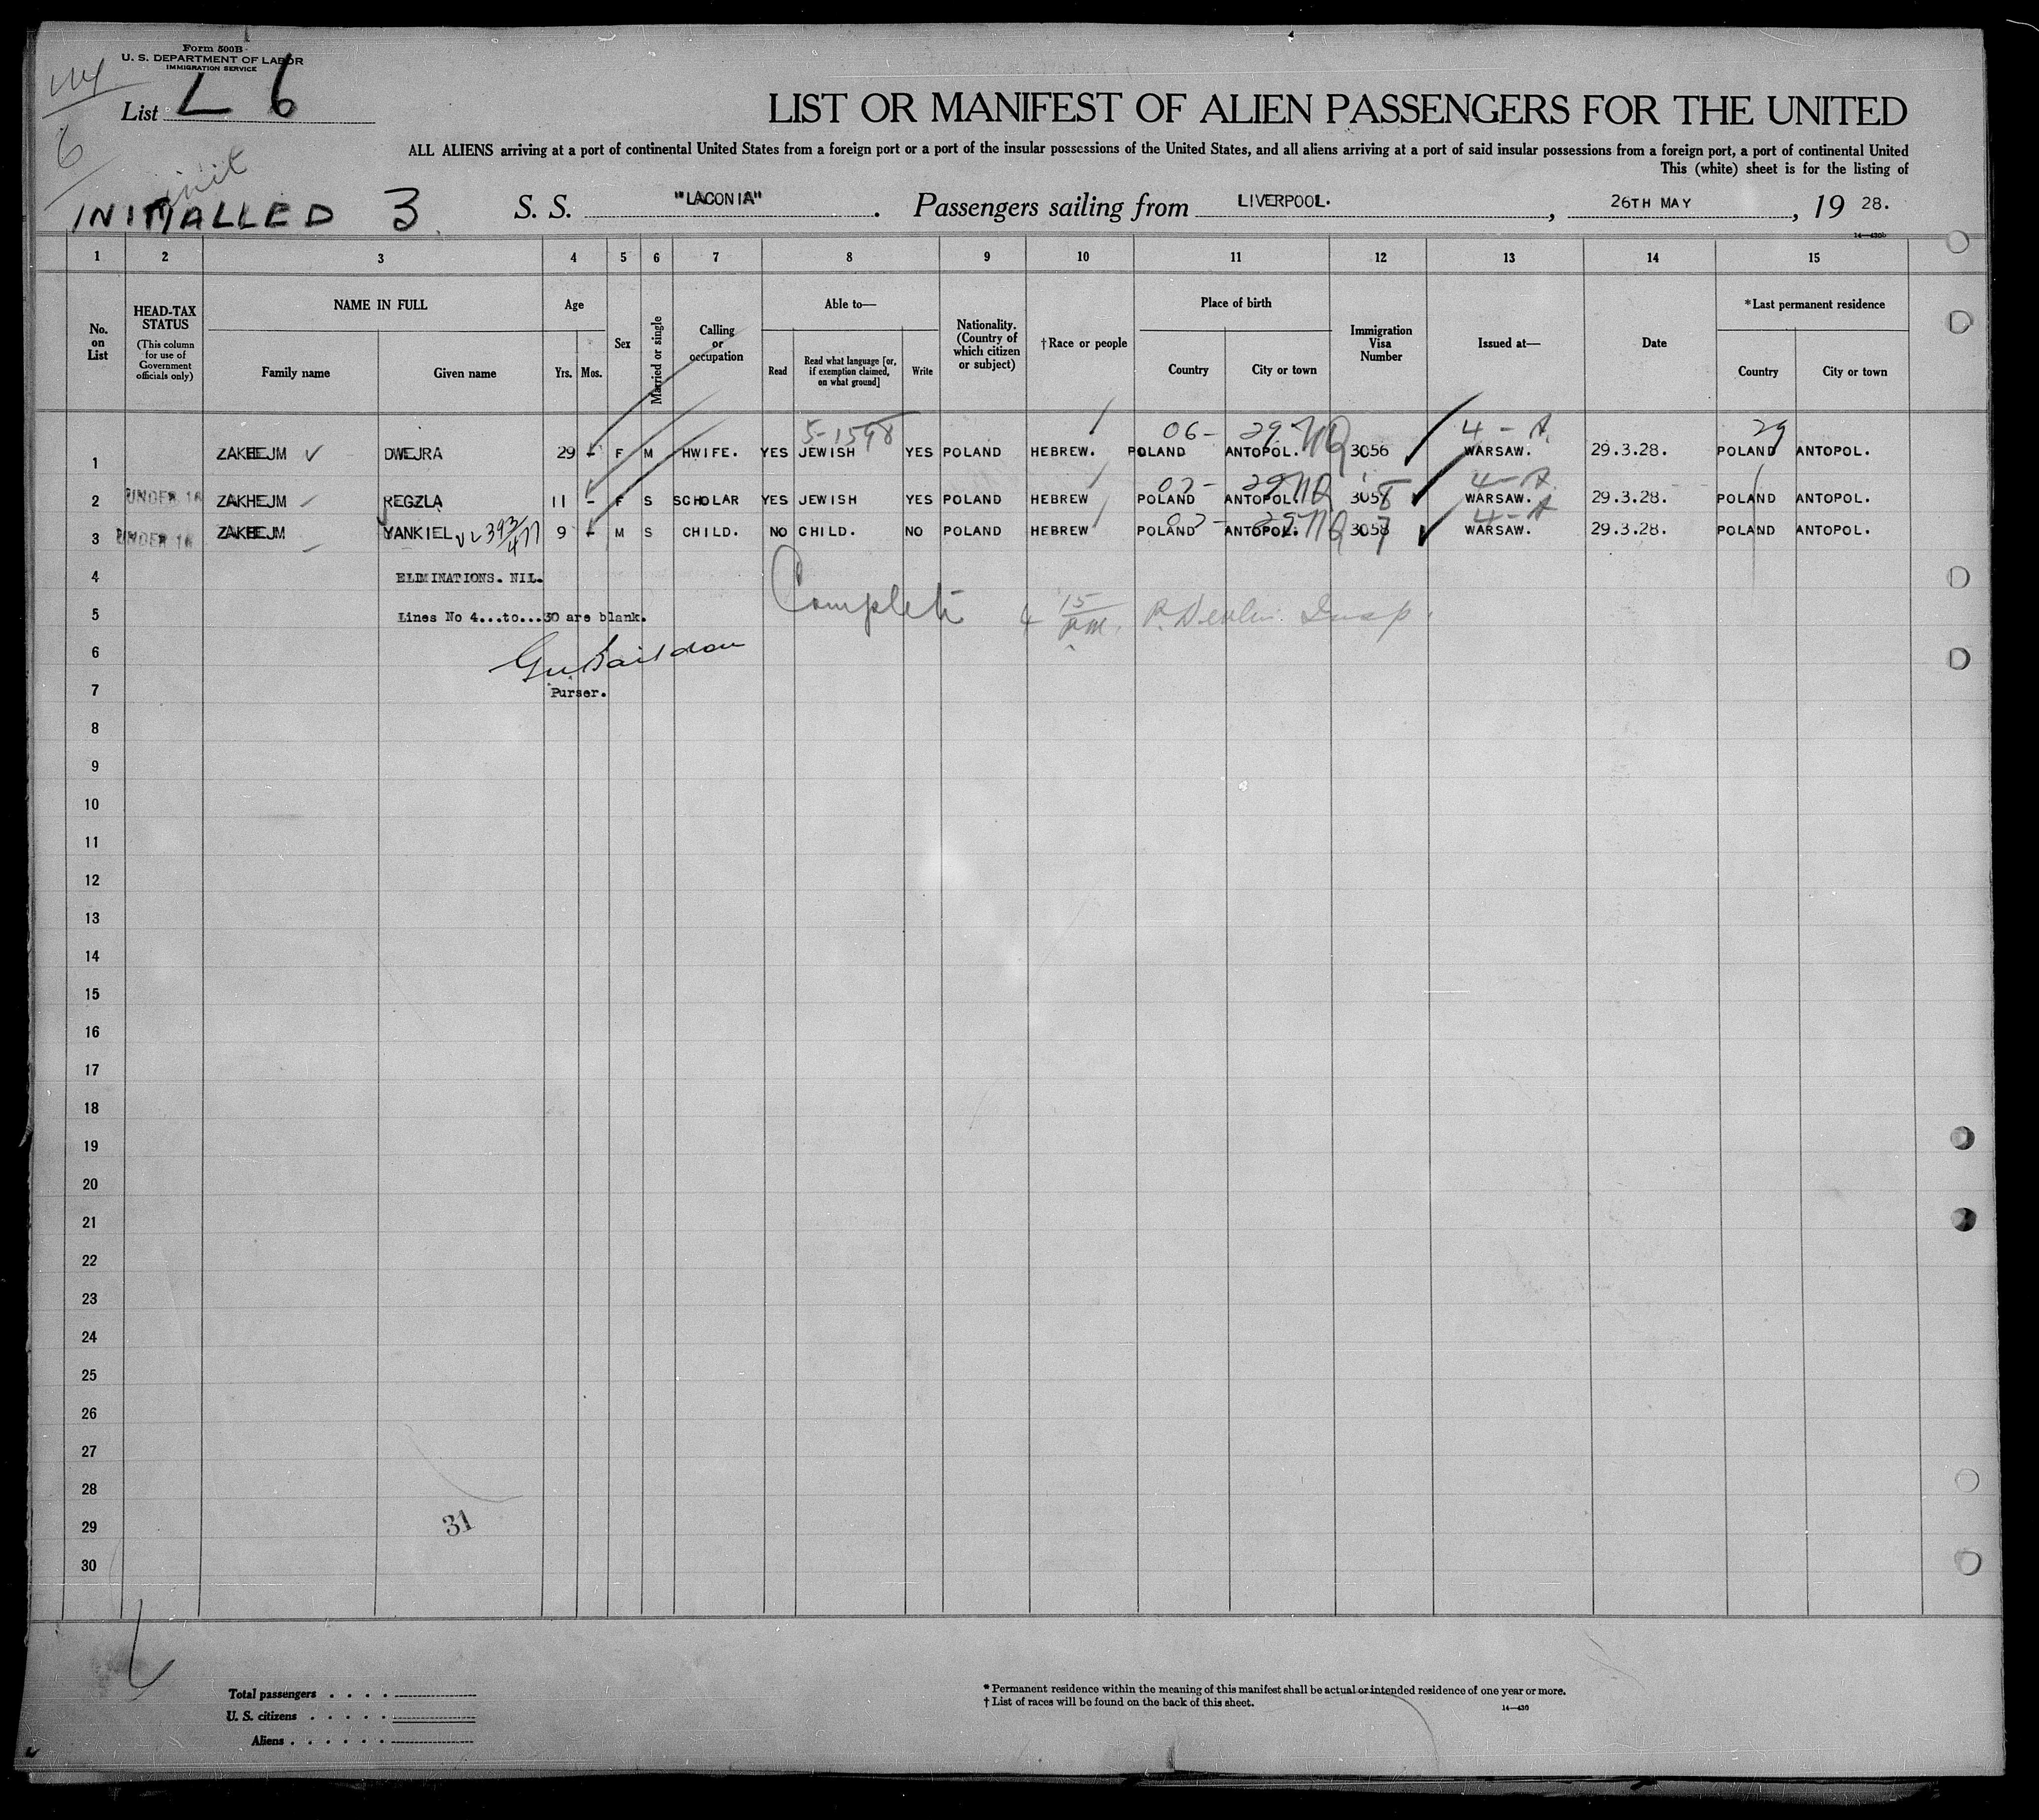 Form 500B
U. S. DEPARTMENT OF LABOR
IMMIGRATION SERVICE
List L 6
6
LIST OR MANIFEST OF ALIEN PASSENGERS FOR THE UNITED
ALL ALIENS arriving at a port of continental United States from a foreign port or a port of the insular possessions of the United States, and all aliens arriving at a port of said insular possessions from a foreign port, a port of continental United
This (white) sheet is for the listing of
INITIALLED 3 S. S. "LACONIA". Passengers sailing from LIVERPOOL., 26TH MAY, 19 28.
14—430b
1 2 3 4 5 6 7 8 9 10 11 12 13 14 15
No. on List
HEAD-TAX STATUS
(This column for use of Government officials only)
NAME IN FULL
Family name Given name
Age
Yrs. Mos.
Sex
Married or single
Calling or occupation
Able to—
Read
Read what language [or, if exemption claimed, on what ground]
Write
Nationality. (Country of which citizen or subject)
†Race or people
Place of birth
Country City or town
Immigration Visa Number
Issued at—
Date
*Last permanent residence
Country City or town
5-1598 06- 29 4 - A. 29
1 ZAKHEJM DWEJRA 29 - F M HWIFE. YES JEWISH YES POLAND HEBREW. POLAND ANTOPOL. 3056 WARSAW. 29.3.28. POLAND ANTOPOL.
07- 29 4-A.
2 UNDER 16 ZAKHEJM REGZLA 11 - F S SCHOLAR YES JEWISH YES POLAND HEBREW POLAND ANTOPOL. 3058 WARSAW. 29.3.28. POLAND ANTOPOL.
07- 29 4-A
3 UNDER 16 ZAKHEJM YANKIEL 9 - M S CHILD. NO CHILD. NO POLAND HEBREW POLAND ANTOPOL. 3057 WARSAW. 29.3.28. POLAND ANTOPOL.
4 ELIMINATIONS. NIL.
5 Lines No 4...to...30 are blank.
Complete 4 15/PM. P. Devlin Insp.
6
7 Purser.
8
9
10
11
12
13
14
15
16
17
18
19
20
21
22
23
24
25
26
27
28
29
31
30
Total passengers . . . .
U. S. citizens . . . . .
Aliens . . . . . .
* Permanent residence within the meaning of this manifest shall be actual or intended residence of one year or more.
† List of races will be found on the back of this sheet.
14—430